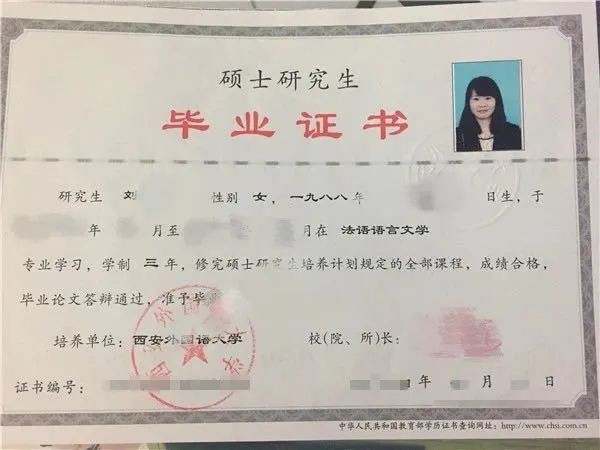 硕士研究生
毕业证书
研究生 刘 性别 女，一九八八年 日生，于
年 月至 月在 法语语言文学
专业学习，学制 三 年，修完硕士研究生培养计划规定的全部课程，成绩合格，
毕业论文答辩通过，准予毕业
培养单位：西安外国语大学 校(院、所)长：
证书编号： 年 月 日
中华人民共和国教育部学历证书查询网址：http://www.chsi.com.cn